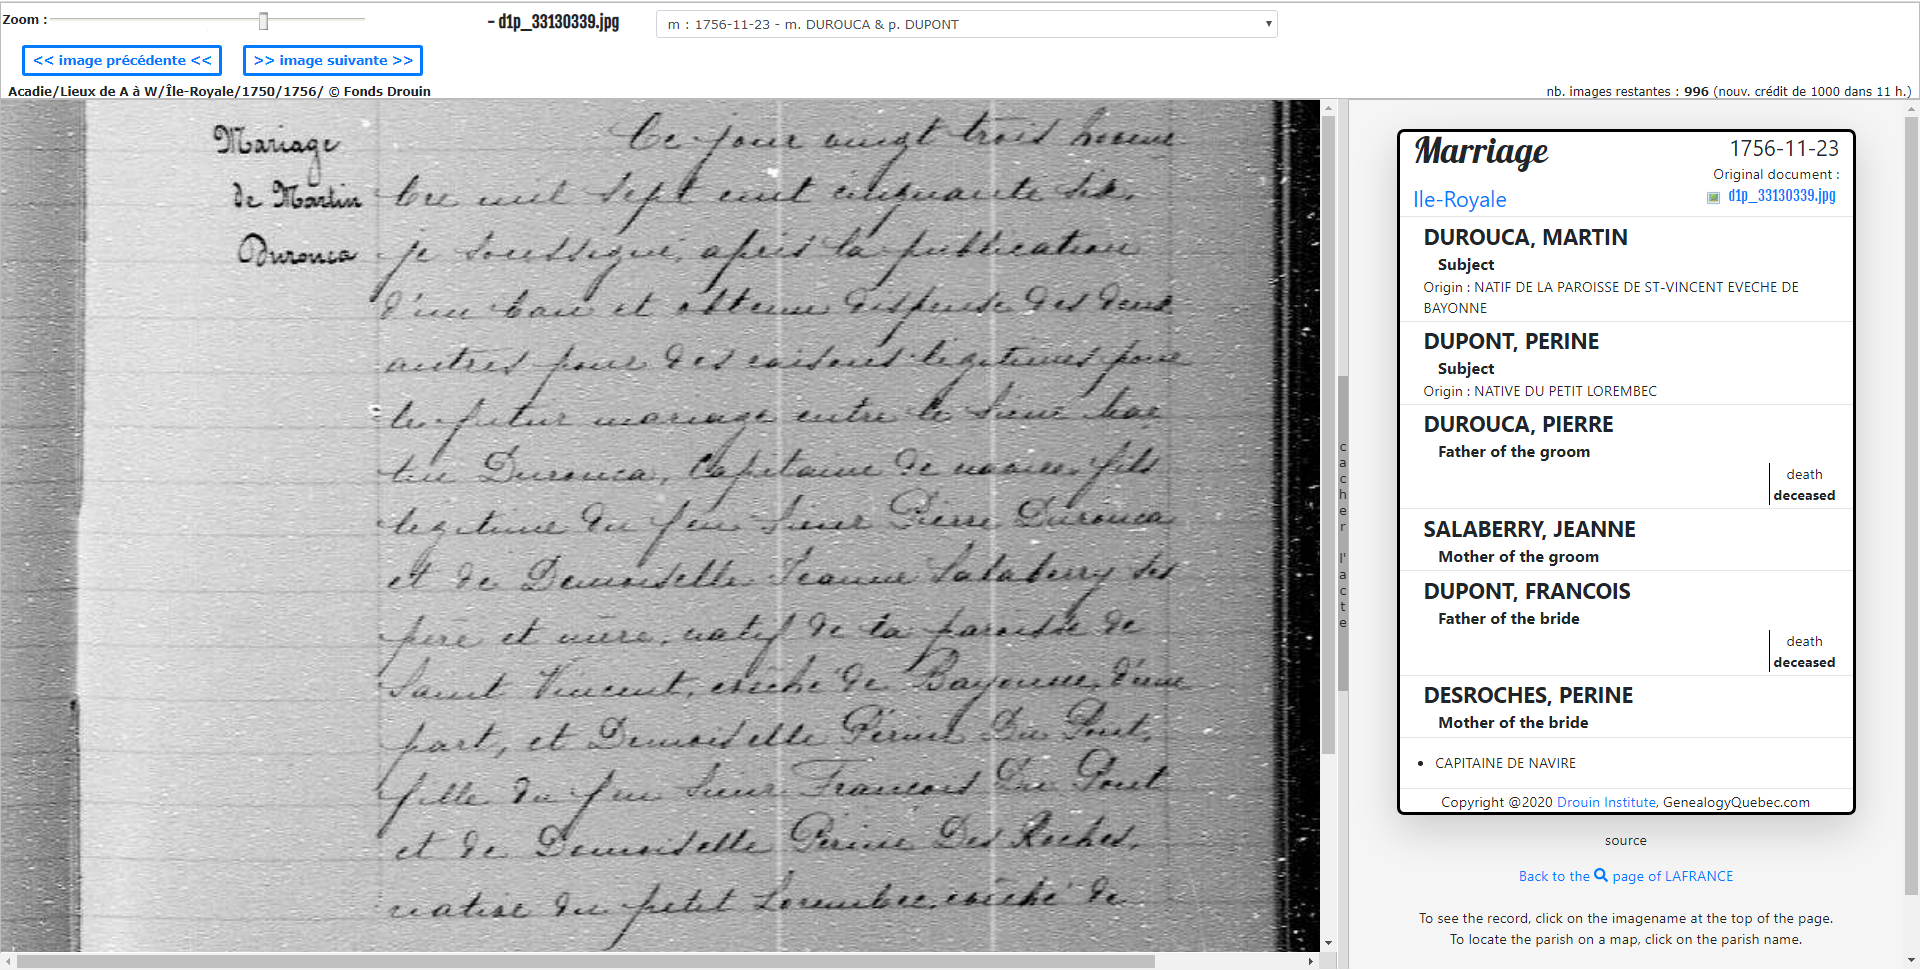 Zoom :
- d1p_33130339.jpg
m : 1756-11-23 - m. DUROUCA & p. DUPONT
<< image précédente <<
>> image suivante >>
Acadie/Lieux de A à W/Île-Royale/1750/1756/ © Fonds Drouin
nb. images restantes : 996 (nouv. crédit de 1000 dans 11 h.)
Mariage
de Martin
Durouca
Ce jour vingt trois novem
bre mil sept cent cinquante six,
je soussigné, après la publication
d'un ban et obtenu dispense des deux
autres pour des raisons légitimes pour
le futur mariage entre le Sieur Mar
tin Durouca, Capitaine de navire, fils
legitime du feu Sieur Pierre Durouca
et de Demoiselle Jeanne Salaberry ses
père et mère, natif de la paroisse de
Saint Vincent, evêché de Bayonne, d'une
part, et Demoiselle Périne Du Pont,
fille du feu Sieur Francois Du Pont
et de Demoiselle Périne Des Roches,
native du petit Lorembec, evêché de
cacher l'acte
Marriage
1756-11-23
Original document :
Ile-Royale
d1p_33130339.jpg
DUROUCA, MARTIN
Subject
Origin : NATIF DE LA PAROISSE DE ST-VINCENT EVECHE DE
BAYONNE
DUPONT, PERINE
Subject
Origin : NATIVE DU PETIT LOREMBEC
DUROUCA, PIERRE
Father of the groom
death
deceased
SALABERRY, JEANNE
Mother of the groom
DUPONT, FRANCOIS
Father of the bride
death
deceased
DESROCHES, PERINE
Mother of the bride
• CAPITAINE DE NAVIRE
Copyright @2020 Drouin Institute, GenealogyQuebec.com
source
Back to the page of LAFRANCE
To see the record, click on the imagename at the top of the page.
To locate the parish on a map, click on the parish name.